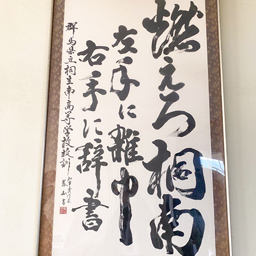 燃えろ桐南
左手に雑巾
右手に辞書
群馬県立桐生南高等学校校訓